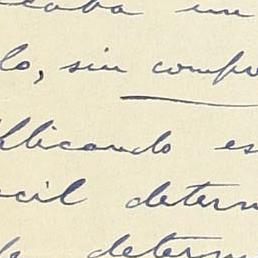 caba un
lo, sin compro
plicando es
cil determ
determ